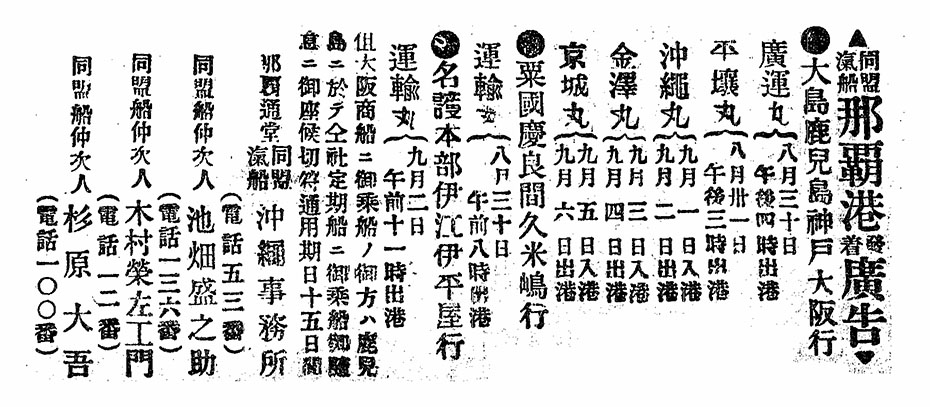 ▲同盟汽船那覇港発着廣告▼
●大島鹿兒島神戸大阪行
廣運丸{八月三十日午後四時出港
平壤丸{八月卅一日午後三時出港
沖繩丸{九月一日入港九月二日出港
金澤丸{九月三日入港九月四日出港
京城丸{九月五日入港九月六日出港
●粟國慶良間久米嶋行
運輸丸{八月三十日午前八時出港
●名護本部伊江伊平屋行
運輸丸{九月二日午前十一時出港
但大阪商船ニ御乘船ノ御方ハ鹿兒
島ニ於テ仝社定期船ニ御乘船御隨
意ニ御座候切符通用期日十五日間
那覇通堂同盟汽船沖繩事務所
(電話五三番)
同盟船仲次人池畑盛之助
(電話一三六番)
同盟船仲次人木村榮左工門
(電話一二番)
同盟船仲次人杉原大吾
(電話一〇〇番)